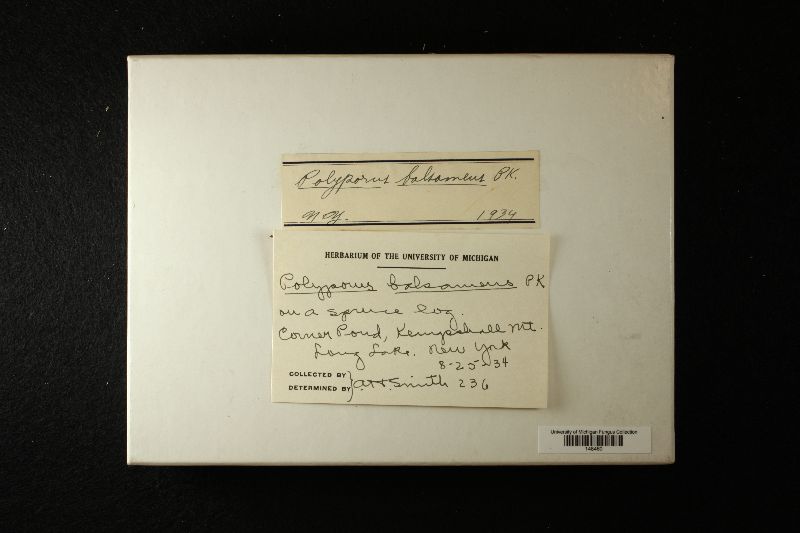 Polyporus balsameus PK.
N Y. 1934
HERBARIUM OF THE UNIVERSITY OF MICHIGAN
Polyporus balsameus PK
on a spruce log.
Corner Pond, Kempshall Mt.
Long Lake. New York
8-25-34
COLLECTED BY
DETERMINED BY A.H. Smith 236
University of Michigan Fungus Collection